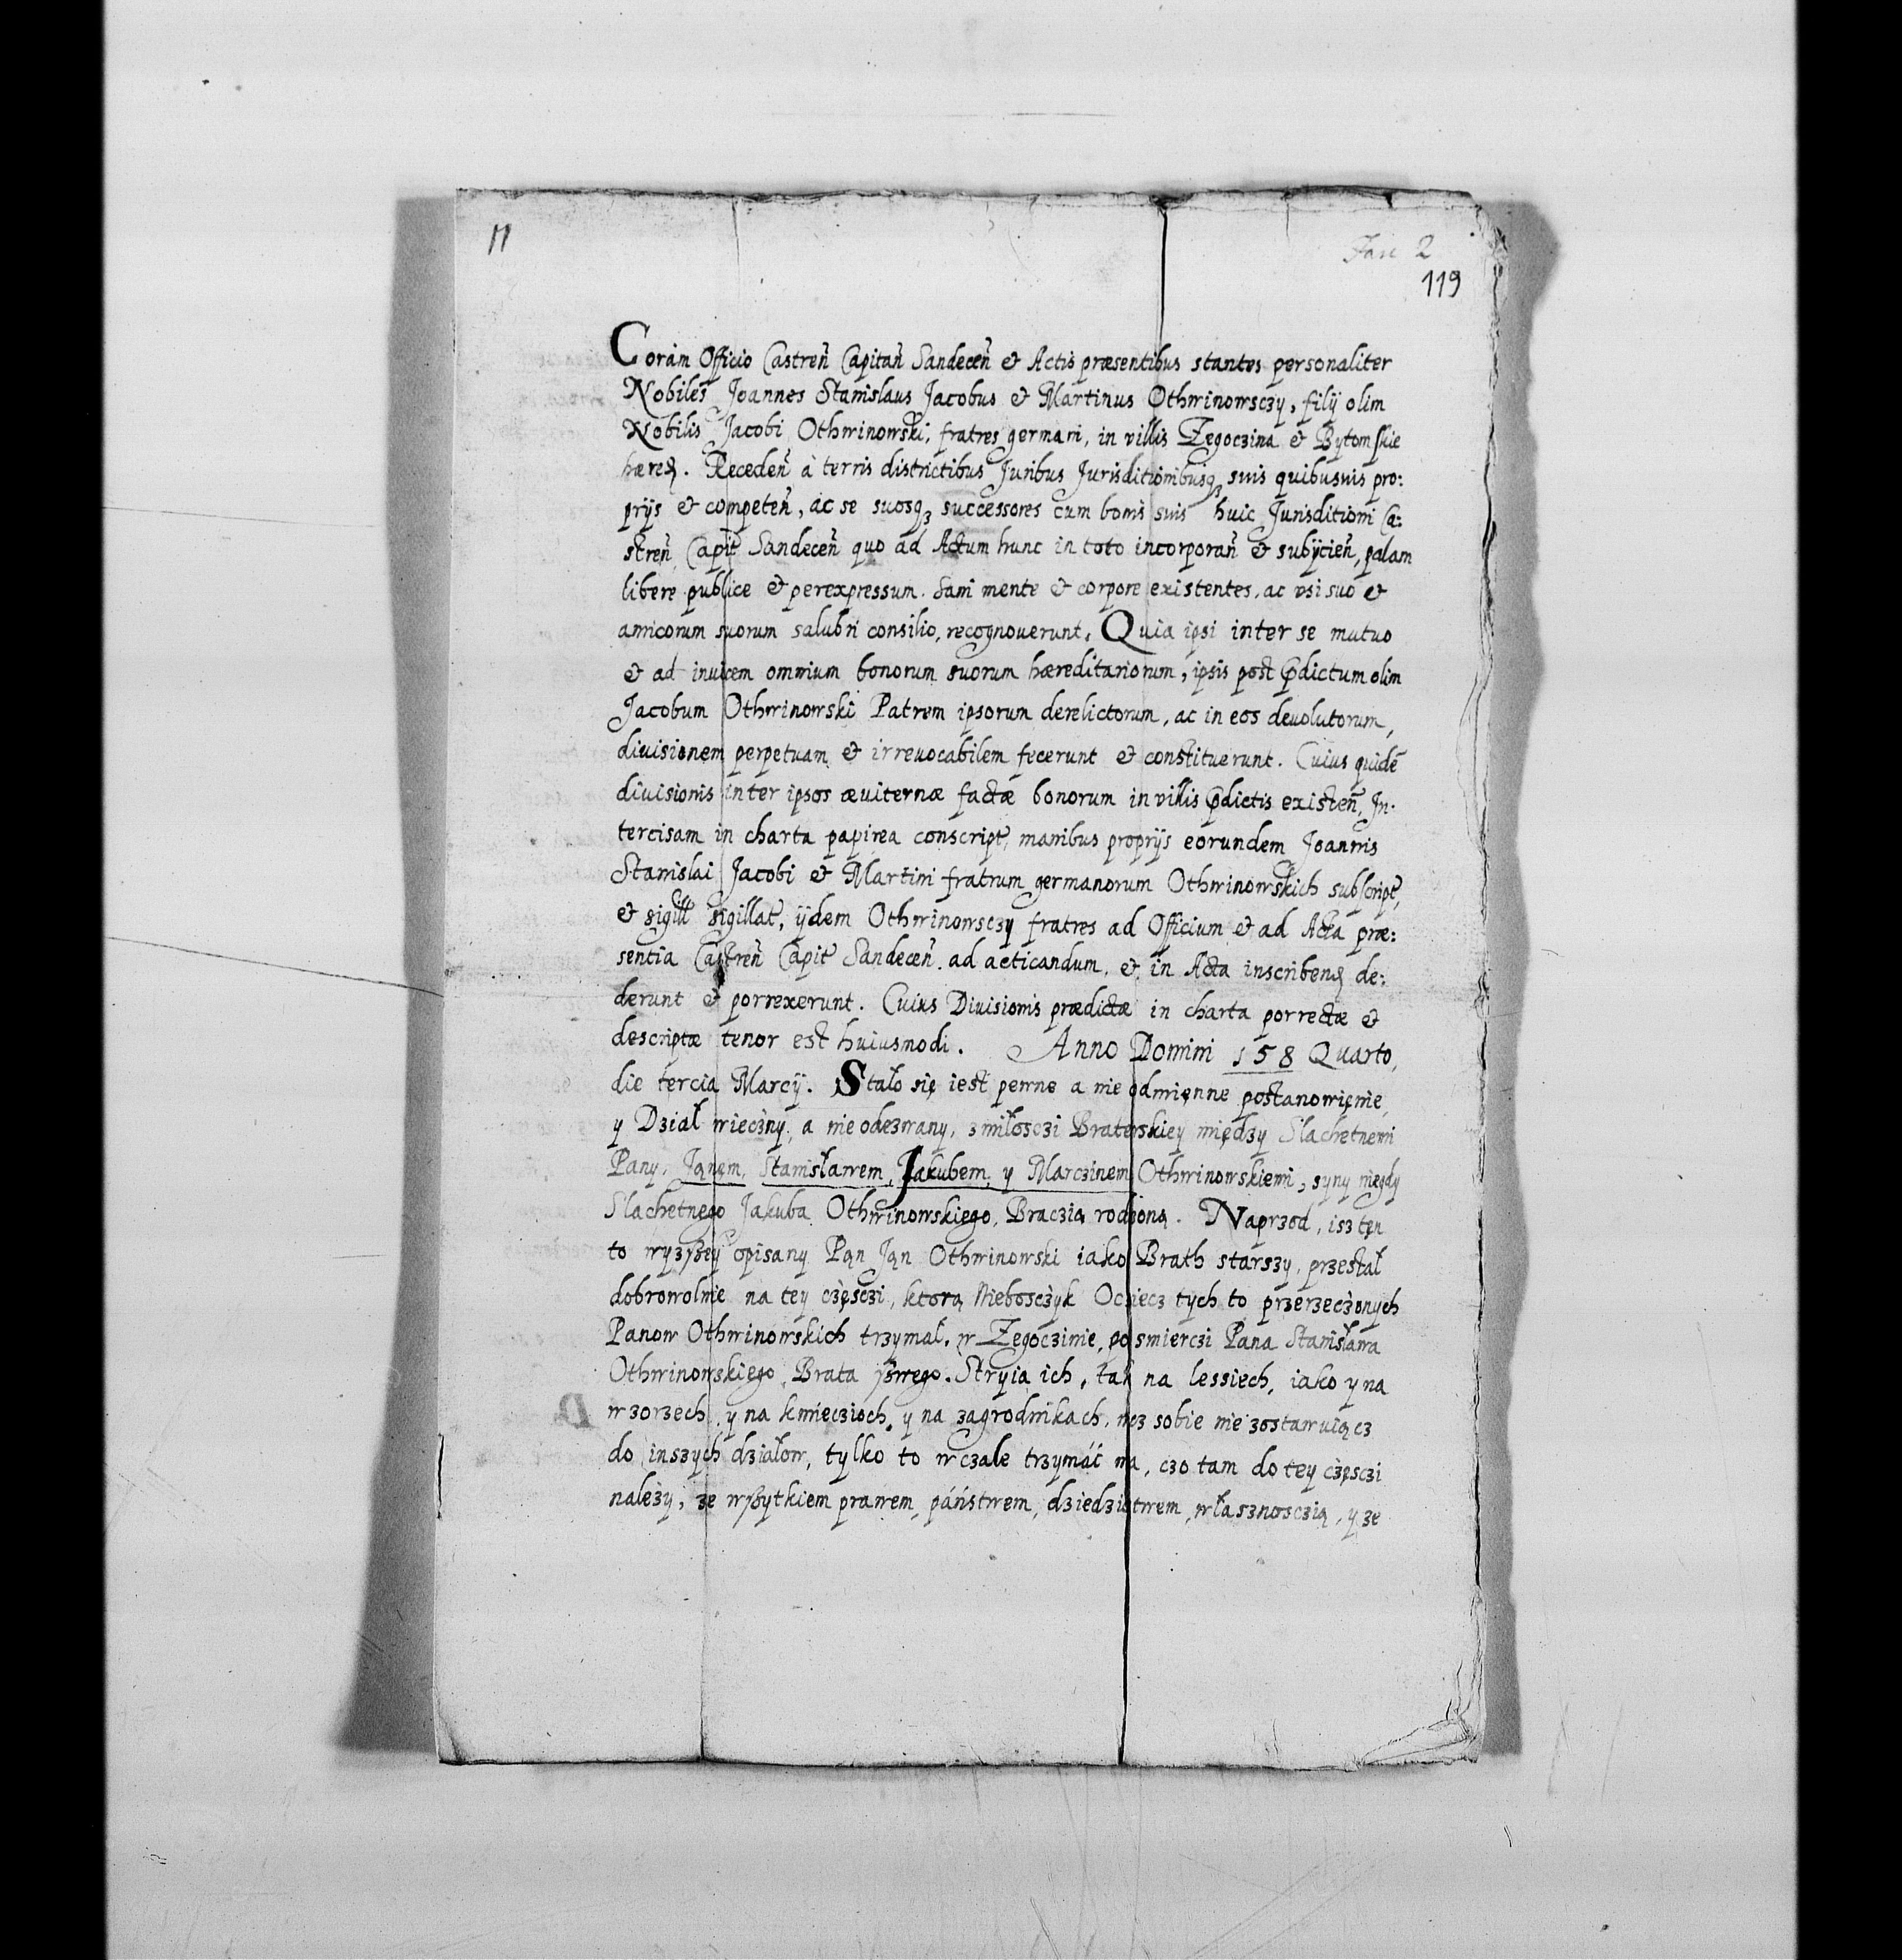 11
Fasc 2
119
Coràm Officio Castreñ Capitañ Sandeceñ & Actis præsentibus stantes personaliter
Nobiles Joannes Stanislaus Jacobus & Martinus Othwinowsczy, filij olim
Nobilis Jacobi Othwinowski, fratres germani, in villis Zegoczina & Bytomskie
hæred. Recedeñ à terris districtibus Juribus Jurisditionibusqꝫ suis quibusuis pro:
prijs & competeñ, ac se suosqꝫ successores cum bonis suis huic Jurisditioni Ca:
streñ Capit Sandeceñ quo ad Actum hunc in toto incorporañ & subijcieñ, palam
libere publice & per expressum. Sani mente & corpore existentes, ac vsi suo &
amicorum suorum salubri consilio, recognouerunt, Quia ipsi inter se mutuo
& ad inuicem omnium bonorum suorum hæreditariorum, ipsis post p̃dictum olim
Jacobum Othwinowski Patrem ipsorum derelictorum, ac in eos deuolutorum,
diuisionem perpetuam & irreuocabilem fecerunt & constituerunt. Cuius quidẽ
diuisionis inter ipsos æuiternæ factæ bonorum in villis p̃dictis existeñ, In:
tercisam in charta papirea conscript, manibus proprijs eorundem Joannis
Stanislai Jacobi & Martini fratrum germanorum Othwinowskich subscript,
& sigill sigillat, ijdem Othwinowsczy fratres ad Officium & ad Acta præ:
sentia Castreñ Capit Sandeceñ. ad acticandum, & in Acta inscribend de:
derunt & porrexerunt. Cuius Diuisionis prædictæ in charta porrectæ &
descriptæ tenor est huiusmodi. Anno Domini 158 Quarto,
die tercia Marcij. Stało się iest pewne a nie odmięnne postanowięnie,
y Dział wieczny, a nie odezwany, z miłosczi Braterskiey między Slachetnemi
Pany, Jąnem, Stanisławem, Jakubem, y Marczinem Othwinowskiemi, syny niegdy
Slachetnego Jakuba Othwinowskiego, Braczią rodzoną. Naprzod, isz tęn
to wyzßey opisany Pąn Jąn Othwinowski iako Brath starszy, przestał
dobrowolnie na tey częsczi, ktorą Niebosczyk Ocziecz tych to przerzeczonych
Panow Othwinowskich trzymał, w Zegoczinie, po smierczi Pana Stanisława
Othwinowskiego, Brata ßwego. Stryia ich, tak na lessiech, iako y na
wzorzech, y na kmieczioch, y na zagrodnikach, nicz sobie nie zostawuiącz
do inszych działow, tylko to w czale trzymáć ma, czo tam do tey częsczi
należy, ze wßytkiem prawem, páństwem, dziedzictwem, własznosczią, y ze